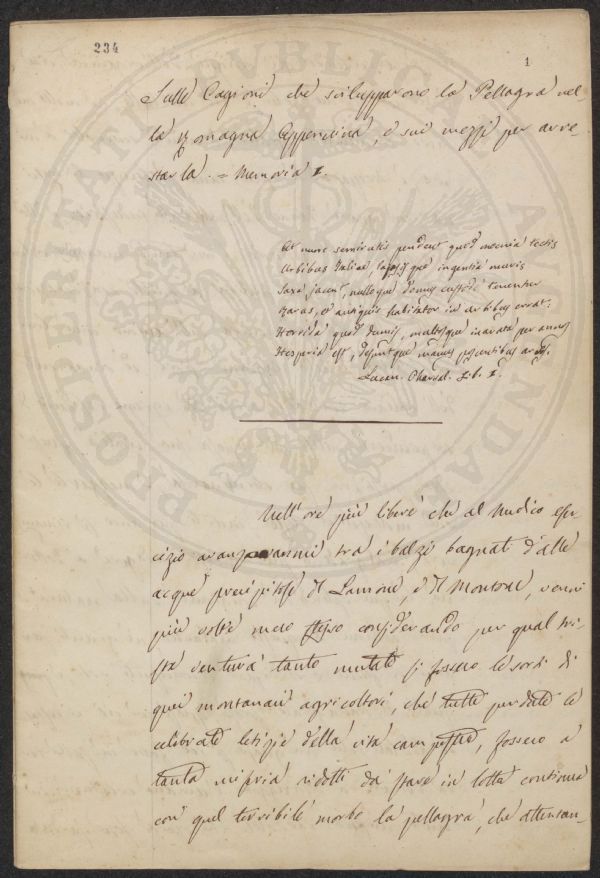 234
1
Sulle Cagioni che svilupparono la Pellagra nel-
la Romagna Appennina, e sui mezzi per arre-
starla. = Memoria I.
At nunc semirutis pendent quod moenia tectis
Urbibus Italiae, lapsisque ingentia muris
Saxa jacent, nulloque domus custode tenentur
Rarus, et antiquis habitator in urbibus errat:
Horrida quod dumis, multosque inarata per annos
Hesperia est, desuntque manus poscentibus arvis.
Lucan. Pharsal. Lib. I.
Nell'ore più libere che al Medico eser-
cizio avanzavanmi tra i balzi bagnati dalle
acque precipitose del Lamone, e del Montone, venni
più volte meco stesso considerando per qual tri-
sta ventura tanto mutate si fossero le sorti di
quei montanari agricoltori, che tutte perdute le
celebrate letizie della vita campestre, fossero a
tanta miseria ridotti da stare in lotta continua
con quel terribile morbo la pellagra, che attentan-
PROSPERITATI PVBLICAE AVGENDAE